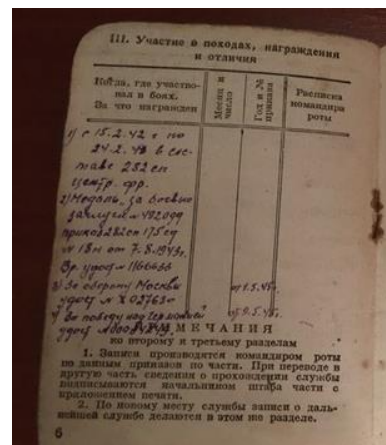 III. Участие в походах, награждения
и отличия
Когда, где участво-
вал в боях.
За что награжден
Месяц и
число
Год и №
приказа
Расписка
командира
роты
1) с 15.2.42 г по
24.2.43 в сос-
таве 282 сп
Центр. фр.
2) Медаль „за боевые
заслуги" №
приказ 282 сп 175 сд
№ 18н от 7.8.1943г.
Вр. удост №
3) За оборону Москвы
удост № Х 027630
от 1.5.45г.
4) За победу над Германией
удост №
от 9.5.45г.
ПРИМЕЧАНИЯ
ко второму и третьему разделам
1. Записи производятся командиром роты
по данным приказов по части. При переводе в
другую часть сведения о прохождении службы
подписываются начальником штаба части с
приложением печати.
2. По новому месту службы записи о даль-
нейшей службе делаются в этом же разделе.
6